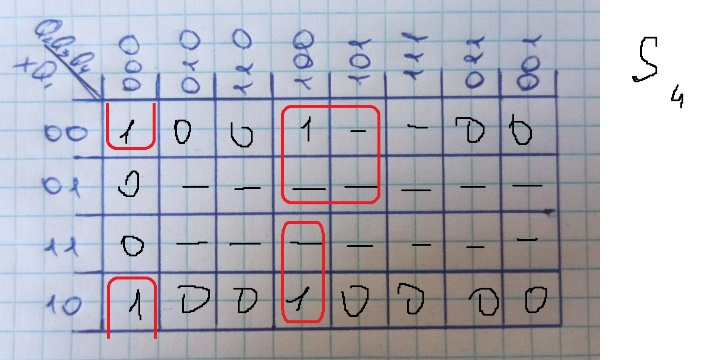 Q₂Q₃Q₄ 000 010 110 100 101 111 011 001
+Q₁
00 1 0 0 1 - - 0 0
01 0 - - - - - - -
11 0 - - - - - - -
10 1 0 0 1 0 0 0 0
S₄